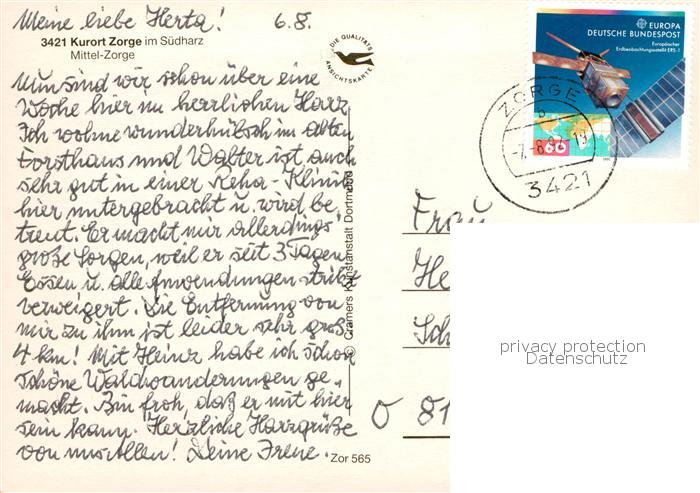 Meine liebe Herta! 6.8.
3421 Kurort Zorge im Südharz
Mittel-Zorge
Nun sind wir schon über eine
Woche hier im herrlichen Harz
Ich wohne wunderhübsch im alten
Forsthaus und Walter ist auch
sehr gut in einer Reha-Klinik
hier untergebracht u. wird be
treut. Er macht mir allerdings
große Sorgen, weil er seit 3 Tagen
Essen u. alle Anwendungen strikt
verweigert. Die Entfernung von
mir zu ihm ist leider sehr groß
4 km! Mit Heinz habe ich schon
schöne Waldwanderungen ge
macht. Bin froh, daß er mit hier
sein kann. Herzliche Harzgrüße
von uns Allen! Deine Irene.
Zor 565
DIE QUALITÄTS
ANSICHTSKARTE
© Cramers Kunstanstalt Dortmund
EUROPA
DEUTSCHE BUNDESPOST
Europäischer
Erdbeobachtungssatellit ERS-1
60
1991
ZORGE
b
3421
Frau
He
Sch
O 81
privacy protection
Datenschutz